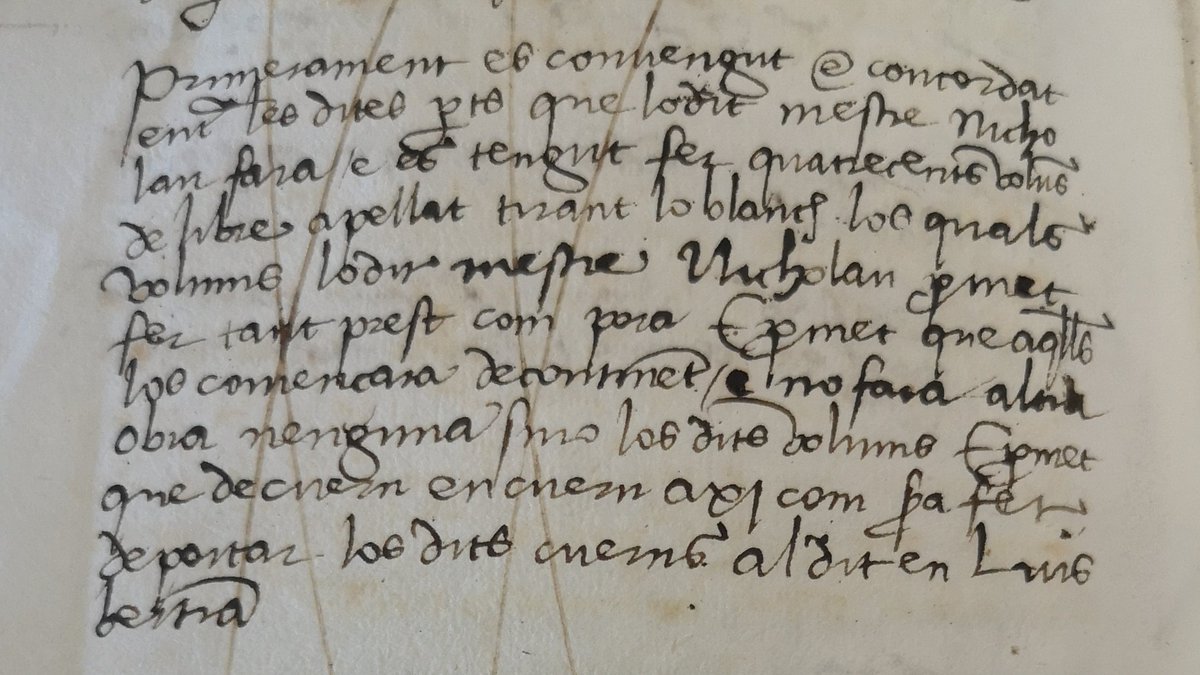 Primerament es convengut e concordat
ent les dites pts que lo dit mestre Nicho
lau fara e es tengut fer quatrecents volus
de libre apellat tirant lo blanch los quals
volums lo dit mestre Nicholau pmet
fer tant prest com pora E pmet que aqlls
los comencara de continet / e no fara altra
obra nenguna sino los dits volums E pmet
que de cuern en cuern axi com pa fer
de portar los dits cuerns al dit en Luis
bertra